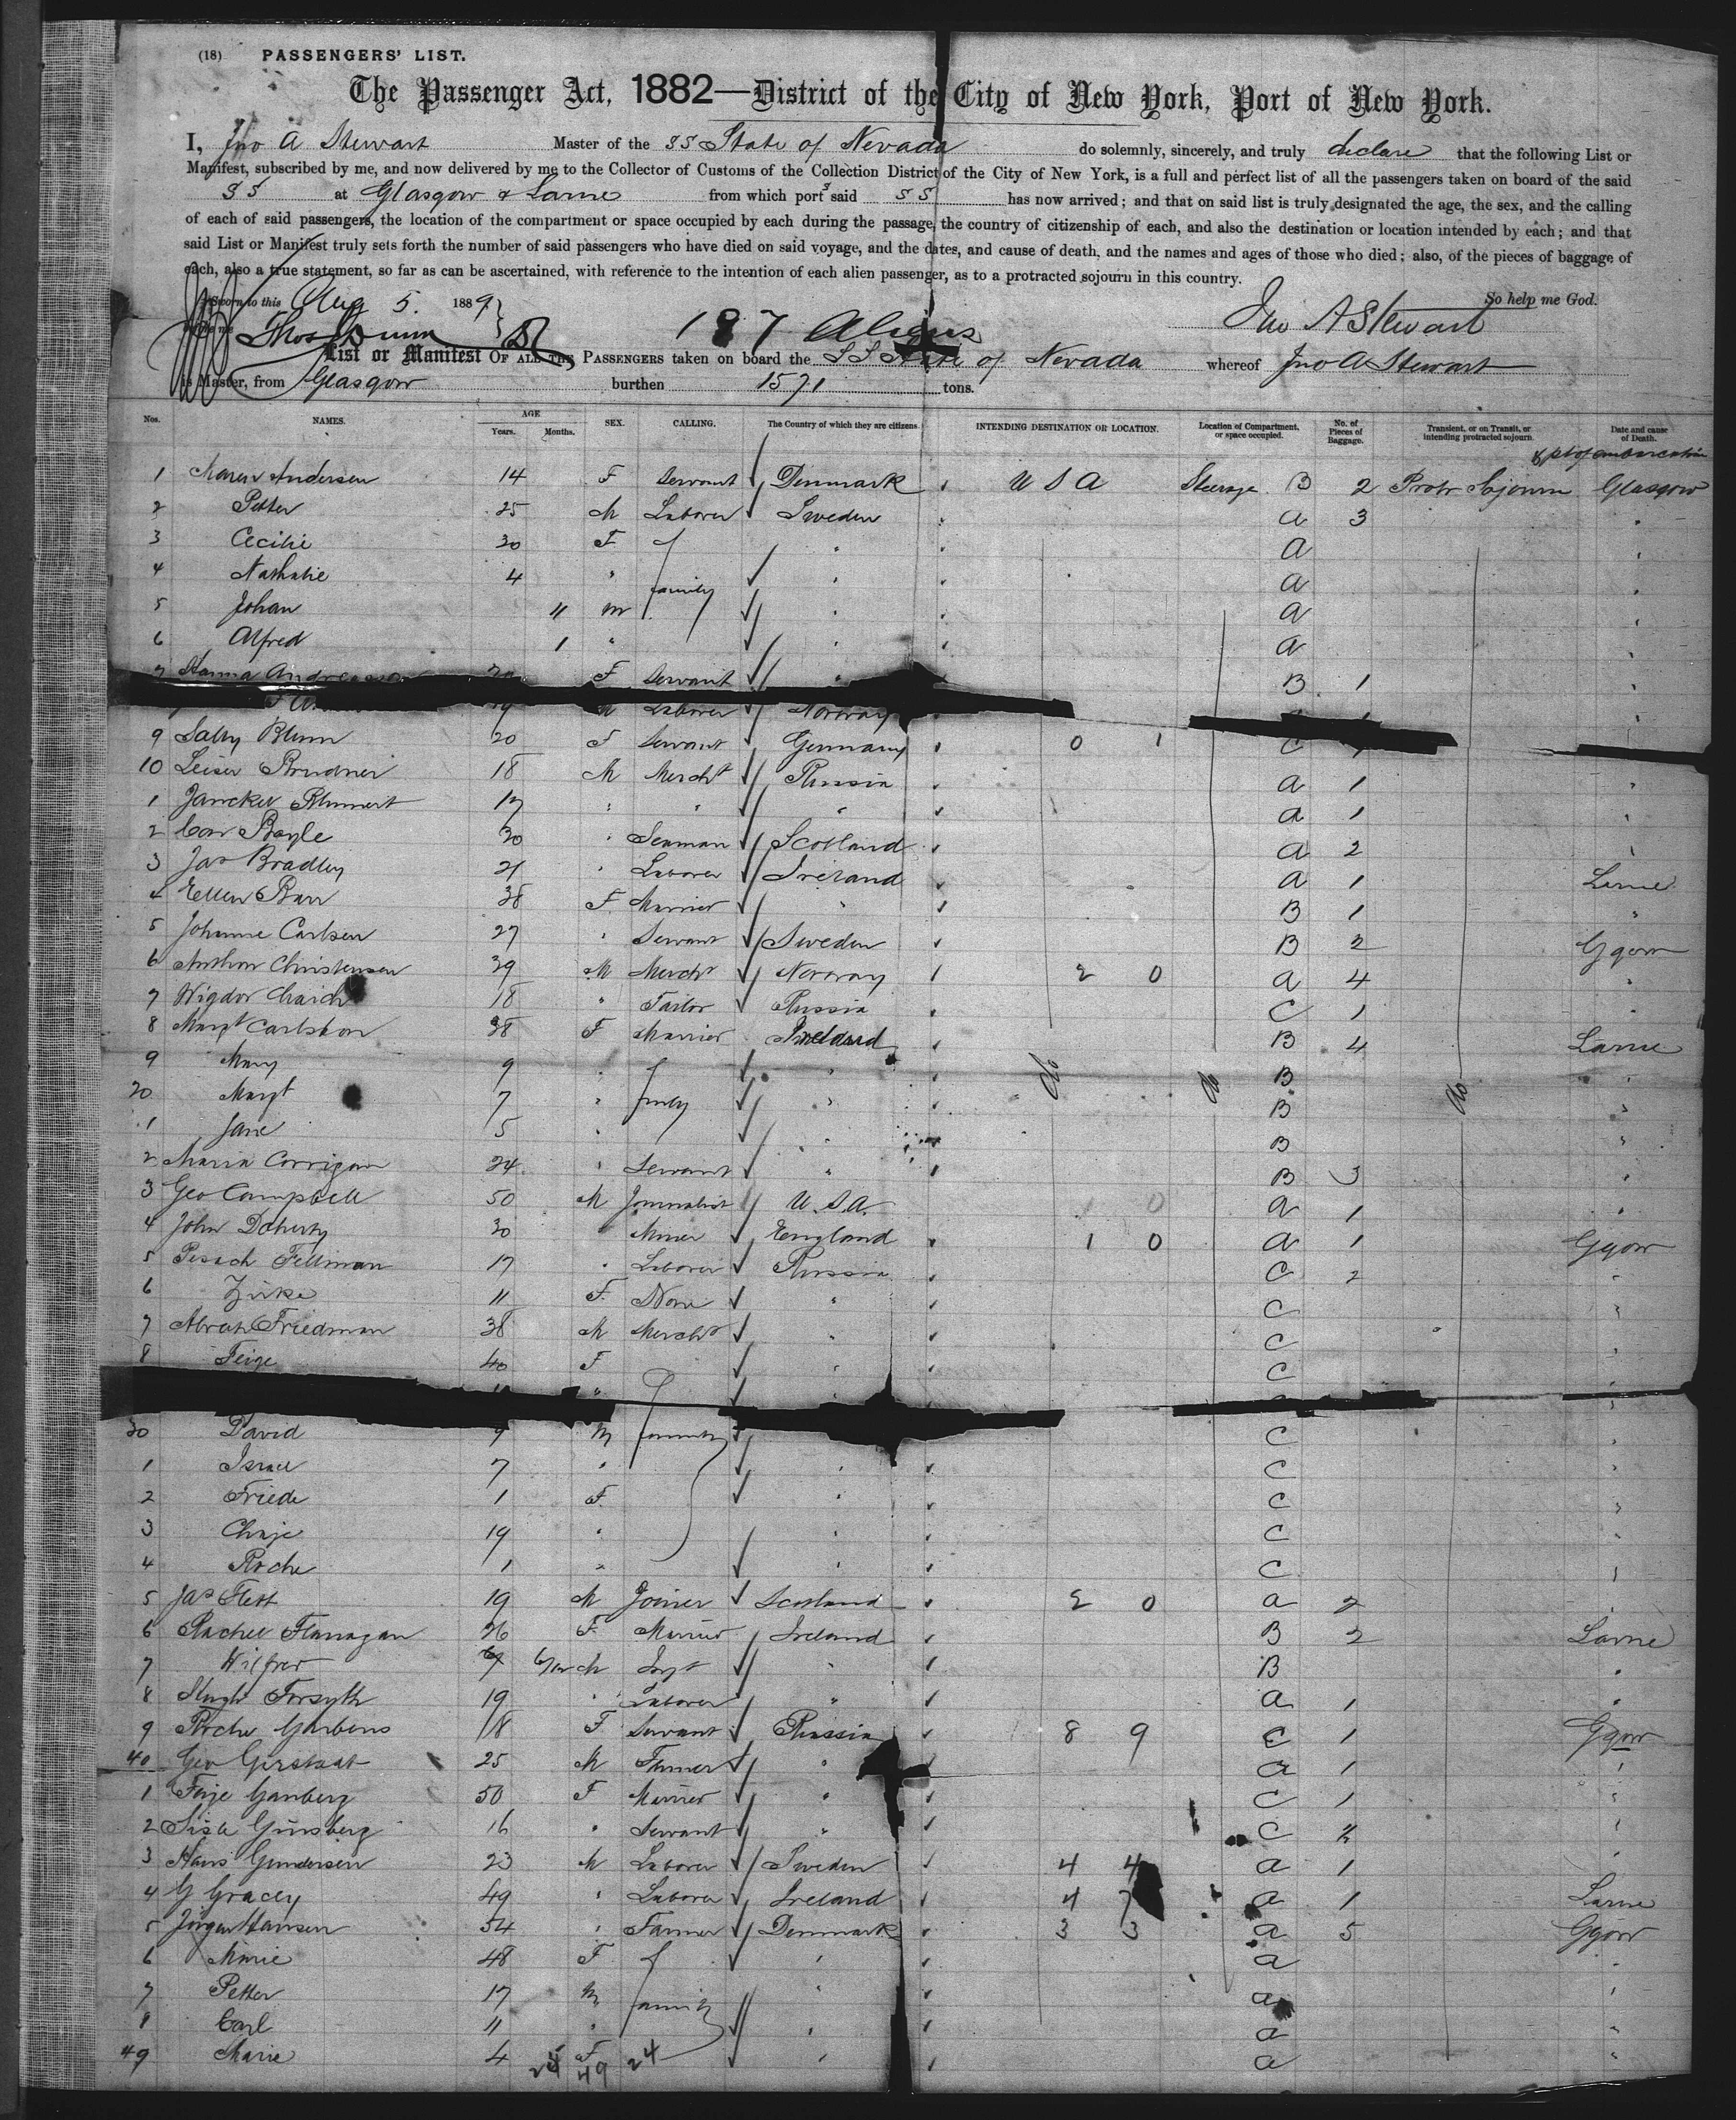 (18) PASSENGERS' LIST.
The Passenger Act, 1882—District of the City of New York, Port of New York.
I, Jno A Stewart Master of the SS State of Nevada do solemnly, sincerely, and truly declare that the following List or
Manifest, subscribed by me, and now delivered by me to the Collector of Customs of the Collection District of the City of New York, is a full and perfect list of all the passengers taken on board of the said
SS at Glasgow & Larne from which ports said SS has now arrived; and that on said list is truly designated the age, the sex, and the calling
of each of said passengers, the location of the compartment or space occupied by each during the passage, the country of citizenship of each, and also the destination or location intended by each; and that
said List or Manifest truly sets forth the number of said passengers who have died on said voyage, and the dates, and cause of death, and the names and ages of those who died; also, of the pieces of baggage of
each, also a true statement, so far as can be ascertained, with reference to the intention of each alien passenger, as to a protracted sojourn in this country.
Sworn to this Aug 5. 1889 So help me God.
before me Thos Dunn 187 Aliens Jno A Stewart
List or Manifest OF ALL THE PASSENGERS taken on board the SS State of Nevada whereof Jno A Stewart
is Master, from Glasgow burthen 1571 tons.
Nos. NAMES. AGE Years. Months. SEX. CALLING. The Country of which they are citizens. INTENDING DESTINATION OR LOCATION. Location of Compartment, or space occupied. No. of Pieces of Baggage. Transient, or on Transit, or intending protracted sojourn. Date and cause of Death.
& pt of embarcation
1 Maren Andersen 14 F Servant Denmark USA Steerage B 2 Protr Sojourn Glasgow
2 Petter 25 M Laborer Sweden A 3 "
3 Cecilie 30 F " A "
4 Nathalie 4 " family " A "
5 Johan 11 M " A "
6 Alfred 1 " " A "
7 Hanna F Servant " B 1 "
Laborer Norway
9 Sally Blum 20 F Servant Germany 0 1 C
10 Leiser 18 M Mercht Russia A 1 "
1 17 " " " A 1 "
2 Con Boyle 30 " Seaman Scotland A 2 "
3 Jas Bradley 21 " Laborer Ireland A 1 Larne
4 Ellen Barr 38 F Married " B 1 "
5 Johanne Carlsen 27 " Servant Sweden B 2 Ggow
6 Anthon Christensen 39 M Mercht Norway 2 0 A 4 "
7 Wigdor 18 " Tailor Russia C 1
8 Margt 38 F Married Ireland B 4 Larne
9 Mary 9 " " do B do do "
20 Margt 7 " family " B "
1 Jane 5 " " B "
2 Maria Corrigan 24 " Servant " B 3 "
3 Geo Campbell 50 M Journalist U.S.A. 0 A 1 "
4 John Doherty 30 " Miner England 1 0 A 1 Ggow
5 Pesach Fellman 17 " Laborer Russia C 2 "
6 Zirke 11 F None " C "
7 Abrah Friedman 38 M Mercht " C "
8 Feige 40 F " C
30 David 9 M family C "
1 Israel 7 " " C "
2 Friede 1 F " C "
3 Chaje 19 " " C "
4 Roche 1 " " C "
5 Jas Flett 19 M Joiner Scotland 2 0 A 2 "
6 Rachel Flanagan 26 F Married Ireland B 2 Larne
7 Wilfred M Inft " B "
8 Hugh Forsyth 19 " Laborer " A 1 "
9 Roche Garbens 18 F Servant Russia 8 9 C 1 Ggow
40 Geo 25 M Farmer " A 1 "
1 Feije Ganberg 50 F Married " C 1 "
2 Ginsberg 16 " Servant " C "
3 Hans Gundersen 23 M Laborer Sweden 4 4 A 1 "
4 G Gracey 49 " Laborer Ireland 4 7 A 1 Larne
5 Jorgen Hansen 54 " Farmer Denmark 3 3 A 5 Ggow
6 Marie 48 F " A "
7 Petter 17 M family " A "
8 Carl 11 " " A "
49 Marie 4 F " A "
49 24